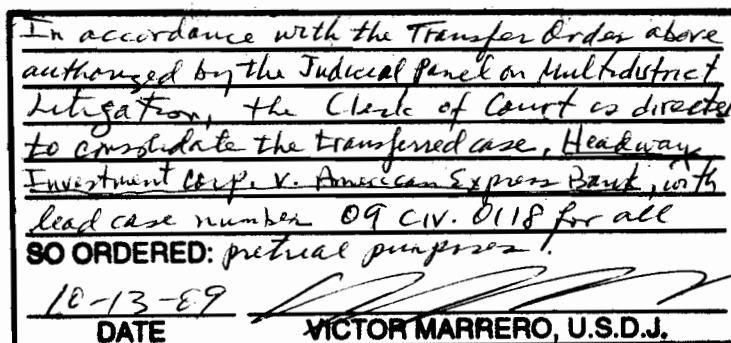 In accordance with the Transfer Order above
authorized by the Judicial Panel on Multidistrict
Litigation, the Clerk of Court is directed
to consolidate the transferred case, Headway
Investment Corp. v. American Express Bank, with
lead case number 09 CIV. 0118 for all
SO ORDERED: pretrial purposes.
10-13-09
DATE VICTOR MARRERO, U.S.D.J.